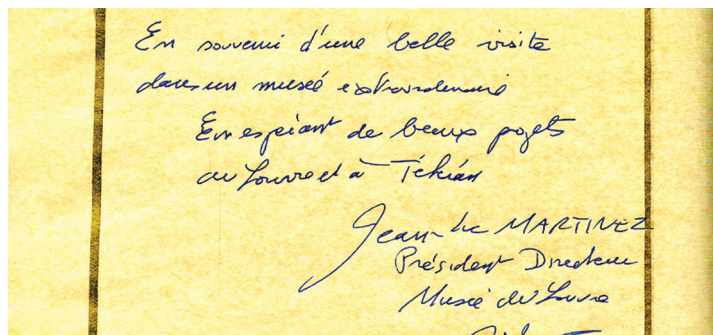 En souvenir d'une belle visite
dans un musée extraordinaire
En espérant de beaux projets
au Louvre et à Téhéran
Jean-Luc MARTINEZ
Président Directeur
Musée du Louvre